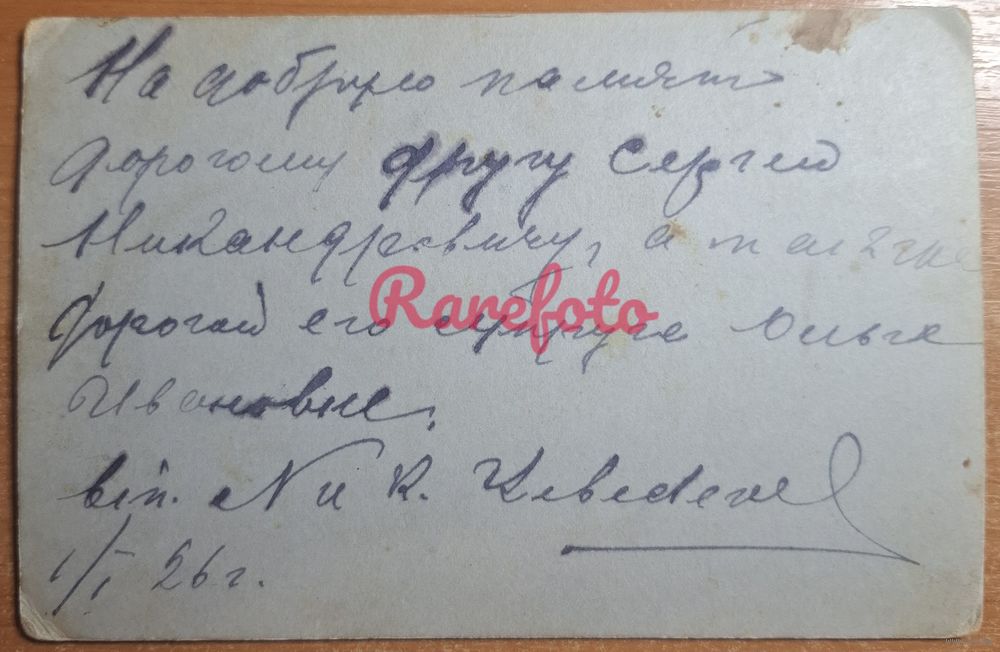 На добрую память
дорогому другу Сергею
Никандровичу, а также
дорогой его супруге Ольге
Ивановне,
Rarefoto
1/I 26 г.